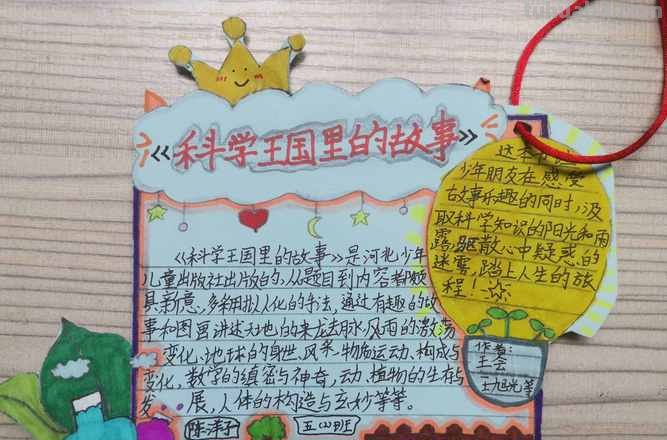 《科学王国里的故事》
《科学王国里的故事》是河北少年
儿童出版社出版的,从题目到内容都颇
具新意,多采用拟人化的手法,通过有趣的故
事和图画讲述天地的来龙去脉,风雨的激荡
变化,地球的身世、风采,物质运动、构成与
变化,数学的缜密与神奇,动、植物的生存与
发展,人体的构造与玄妙等等。
五(2)班
这本书
少年朋友在感受
故事乐趣的同时,汲
取科学知识的阳光和雨
露,驱散心中疑惑的
迷雾,踏上人生的旅
程!
作者:
王云
等